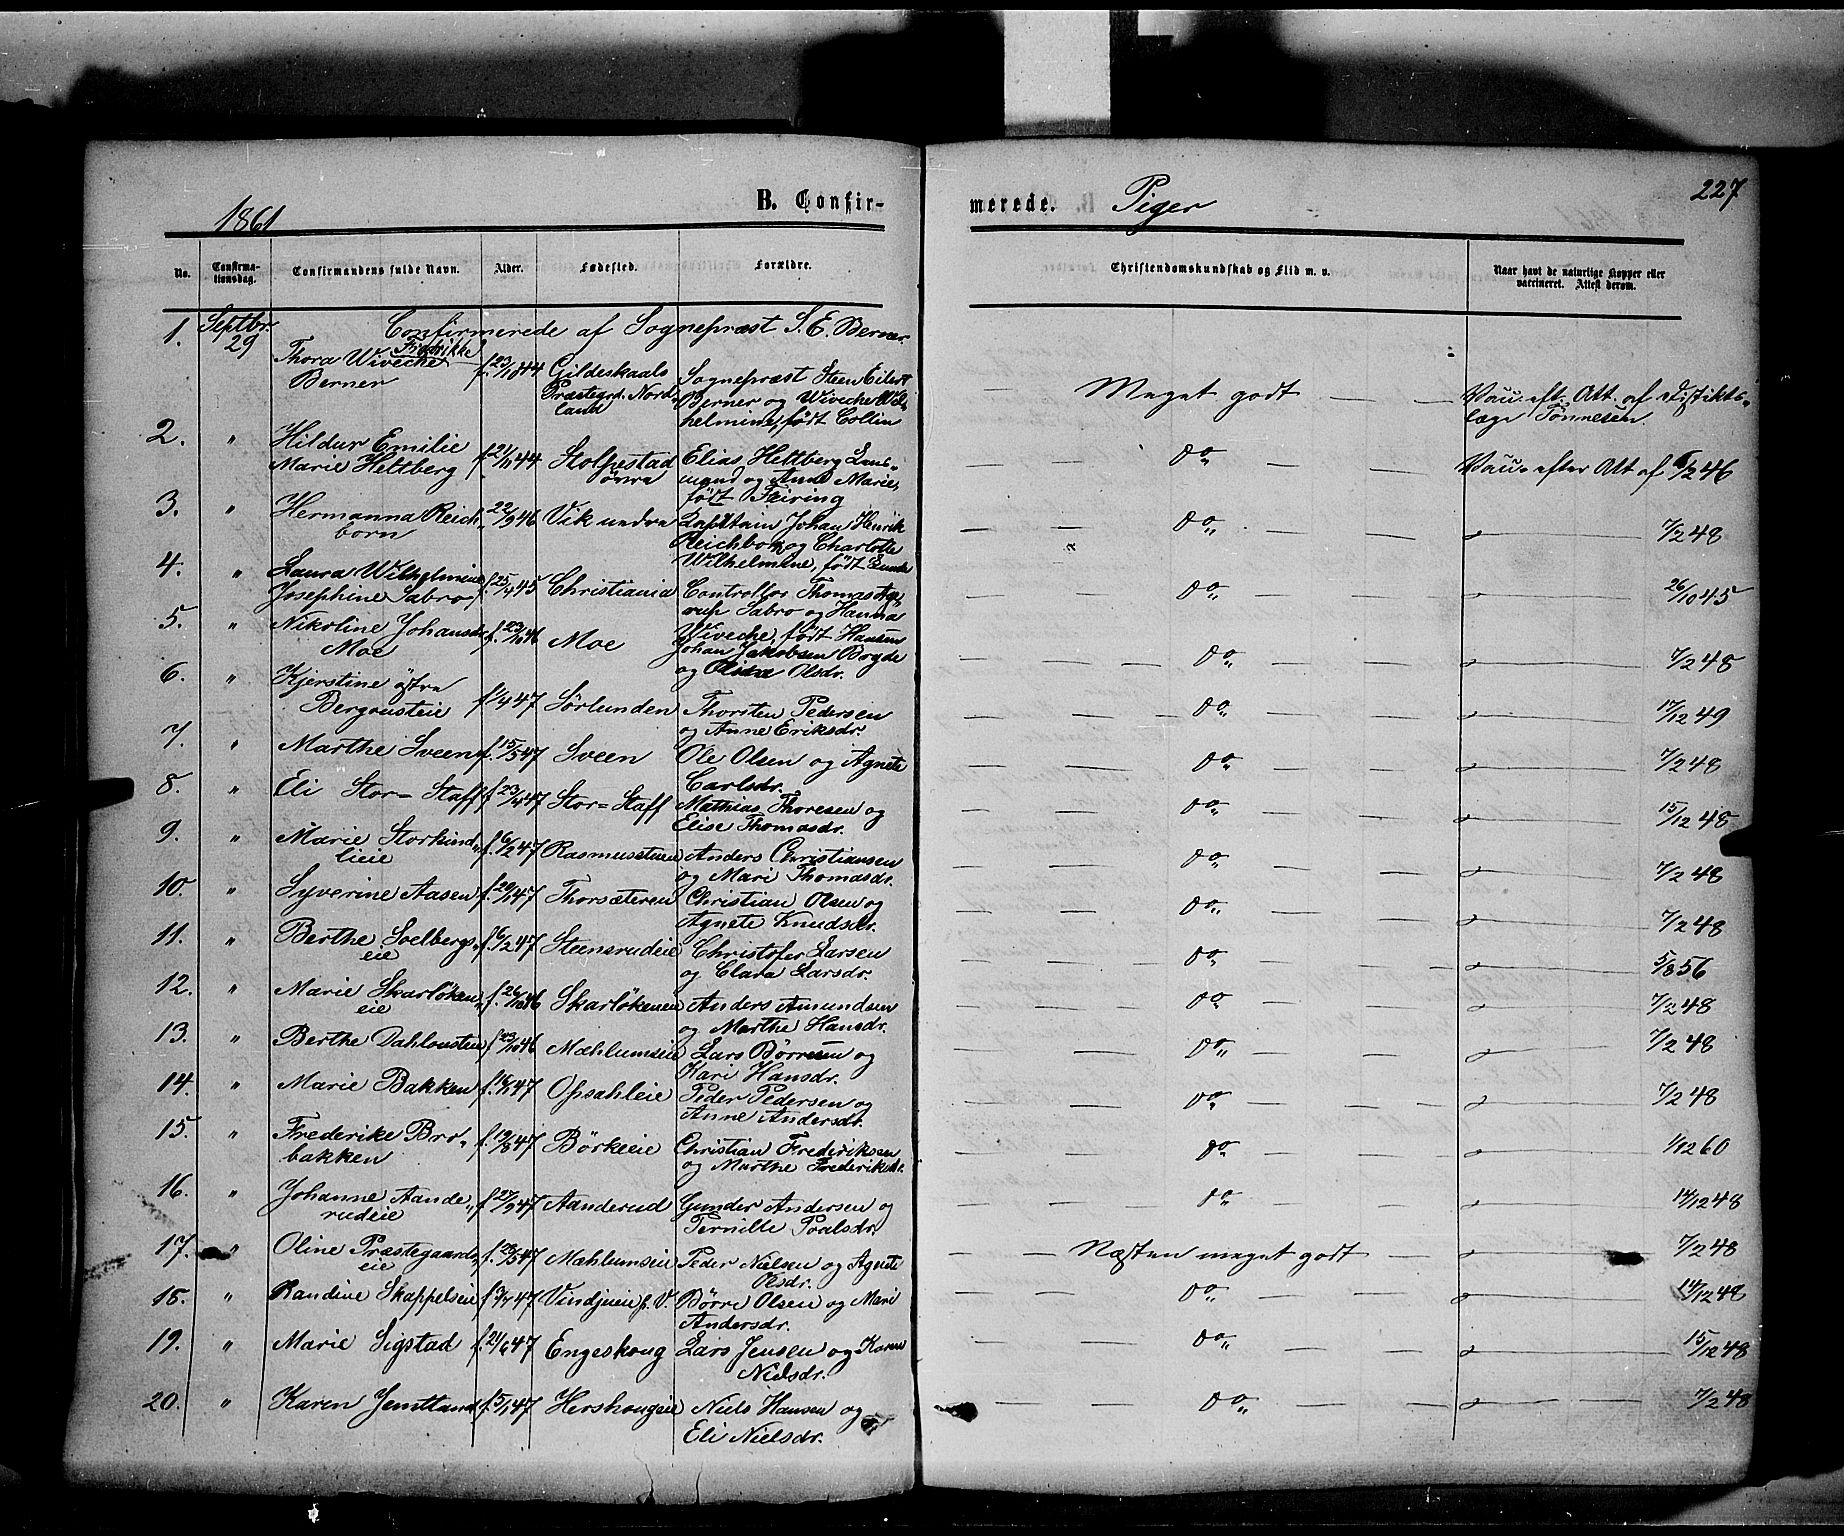 1861
B. Confirmerede. Piger
227
No. Confirmationsdag. Confirmandens fulde Navn. Alder. Fødested. Forældre. Christendomskundskab og Flid m. v. Naar havt de naturlige Kopper eller vaccineret. Attest derom.
Confirmerede af Sognepræst S. E. Berner
1. Septbr. 29 Thora Wiveche Fredrikke Berner f. 23/10 44 Gildeskaals Præstegrd. Nordland Sognepræst Steen Eilert Berner og Wiveche Wilhelmine, født Collin — Meget godt — — Vacc. eft. Att. af Distriktslæge Tönnesen.
2. " Hildur Emilie Marie Hettberg f. 21/11 44 Stolpestad övra Elias Hettberg Lensmand og Anne Marie, født Feiring — do — Vacc. efter Att af 7/2 46
3. " Hermanna Reichborn 22/9 46 Vik nedre Capitain Johan Henrik Reichborn og Charlotte Wilhelmine, født Lunde — do — 7/2 48
4. " Laura Wilhelmine Josephine Sabro f. 25/4 45 Christiania Controllør Thomas Agerup Sabro og Hanna Wiveche, født Hansen — do — 26/10 45
5. " Nikoline Johansdr. Moe f. 23/10 46 Moe Johan Jakobsen Bogde og Oline Olsdr. — do — 7/2 48
6. " Kjerstine östre Bergouseie f. 1/4 47 Sørlunden Thorsten Pedersen og Anne Eriksdr. — do — 17/12 49
7. " Marthe Sveen f. 15/5 47 Sveen Ole Olsen og Agnete Carlsdr. — do — 7/2 48
8. " Eli Stor=Staff f. 23/4 47 Stor=Staff Mathias Thoresen og Elise Thomasdr. — do — 15/12 48
9. " Marie Storkindlieie f. 6/2 47 Rasmusstuen Anders Christiansen og Mari Thomasdr. — do — 7/2 48
10. " Syverine Aasen f. 20/1 47 Thorsæteren Christian Olsen og Agnete Knudsdr. — do — 7/2 48
11. " Berthe Soelbergseie f. 6/2 47 Steensrudeie Christofer Larsen og Clara Larsdr. — do — 5/8 56
12. " Marie Skarlökeneie f. 26/10 46 Skarlökeneie Anders Amundsen og Marthe Hansdr. — do — 7/2 48
13. " Berthe Dahlousteie f. 23/10 46 Mæhlumseie Lars Børresen og Kari Hansdr. — do — 7/2 48
14. " Marie Bakken f. 18/1 47 Opsahleie Peder Pedersen og Anne Andersdr. — do — 7/2 48
15. " Frederike Brobakken f. 19/8 47 Börkeeie Christian Frederiksen og Marthe Frederiksdr. — do — 1/12 60
16. " Johanne Aanderudeie f. 27/9 47 Aanderud Gunder Andersen og Pernille Poalsdr. — do — 14/12 48
17. " Oline Præstegaardseie f. 28/5 47 Mæhlumseie Peder Nielsen og Agnete Olsdr. — Næsten meget godt — 7/2 48
18. " Randine Skappelseie f. 3/7 47 Vindjueie p. V. Börre Olsen og Mari Andersdr. — do — 14/12 48
19. " Marie Sigstad f. 21/6 47 Engeskoug Lars Jensen og Karen Nielsdr. — do — 15/12 48
20. " Karen Jemtland f. 5/1 47 Hershougeie Niels Hansen og Eli Nielsdr. — do — 7/2 48